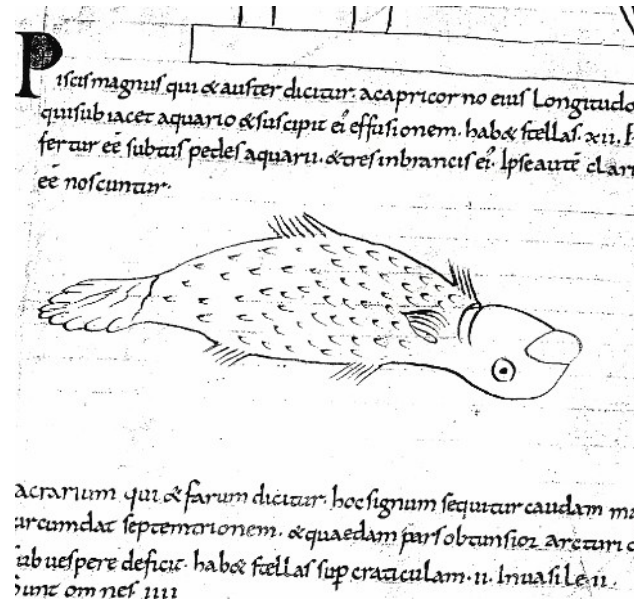 Piscis magnus qui & auster dicitur. acapricorno eius Longitudo
quisubiacet aquario & suscipit ei᾽ effusionem. hab& stellas. xii.
fertur eē subtus pedes aquarii. & tres inbranciis ei᾽. Ipse autē clari
eē noscuntur.
acrarium qui & farum dicitur. hoc signum sequitur caudam ma
ircumdat septemtrionem. & quaedam pars obtunsior arcturi c
sub uespere deficit. hab& stellas sup craticulam. ii. Inuasile ii.
Sunt omnes iiii